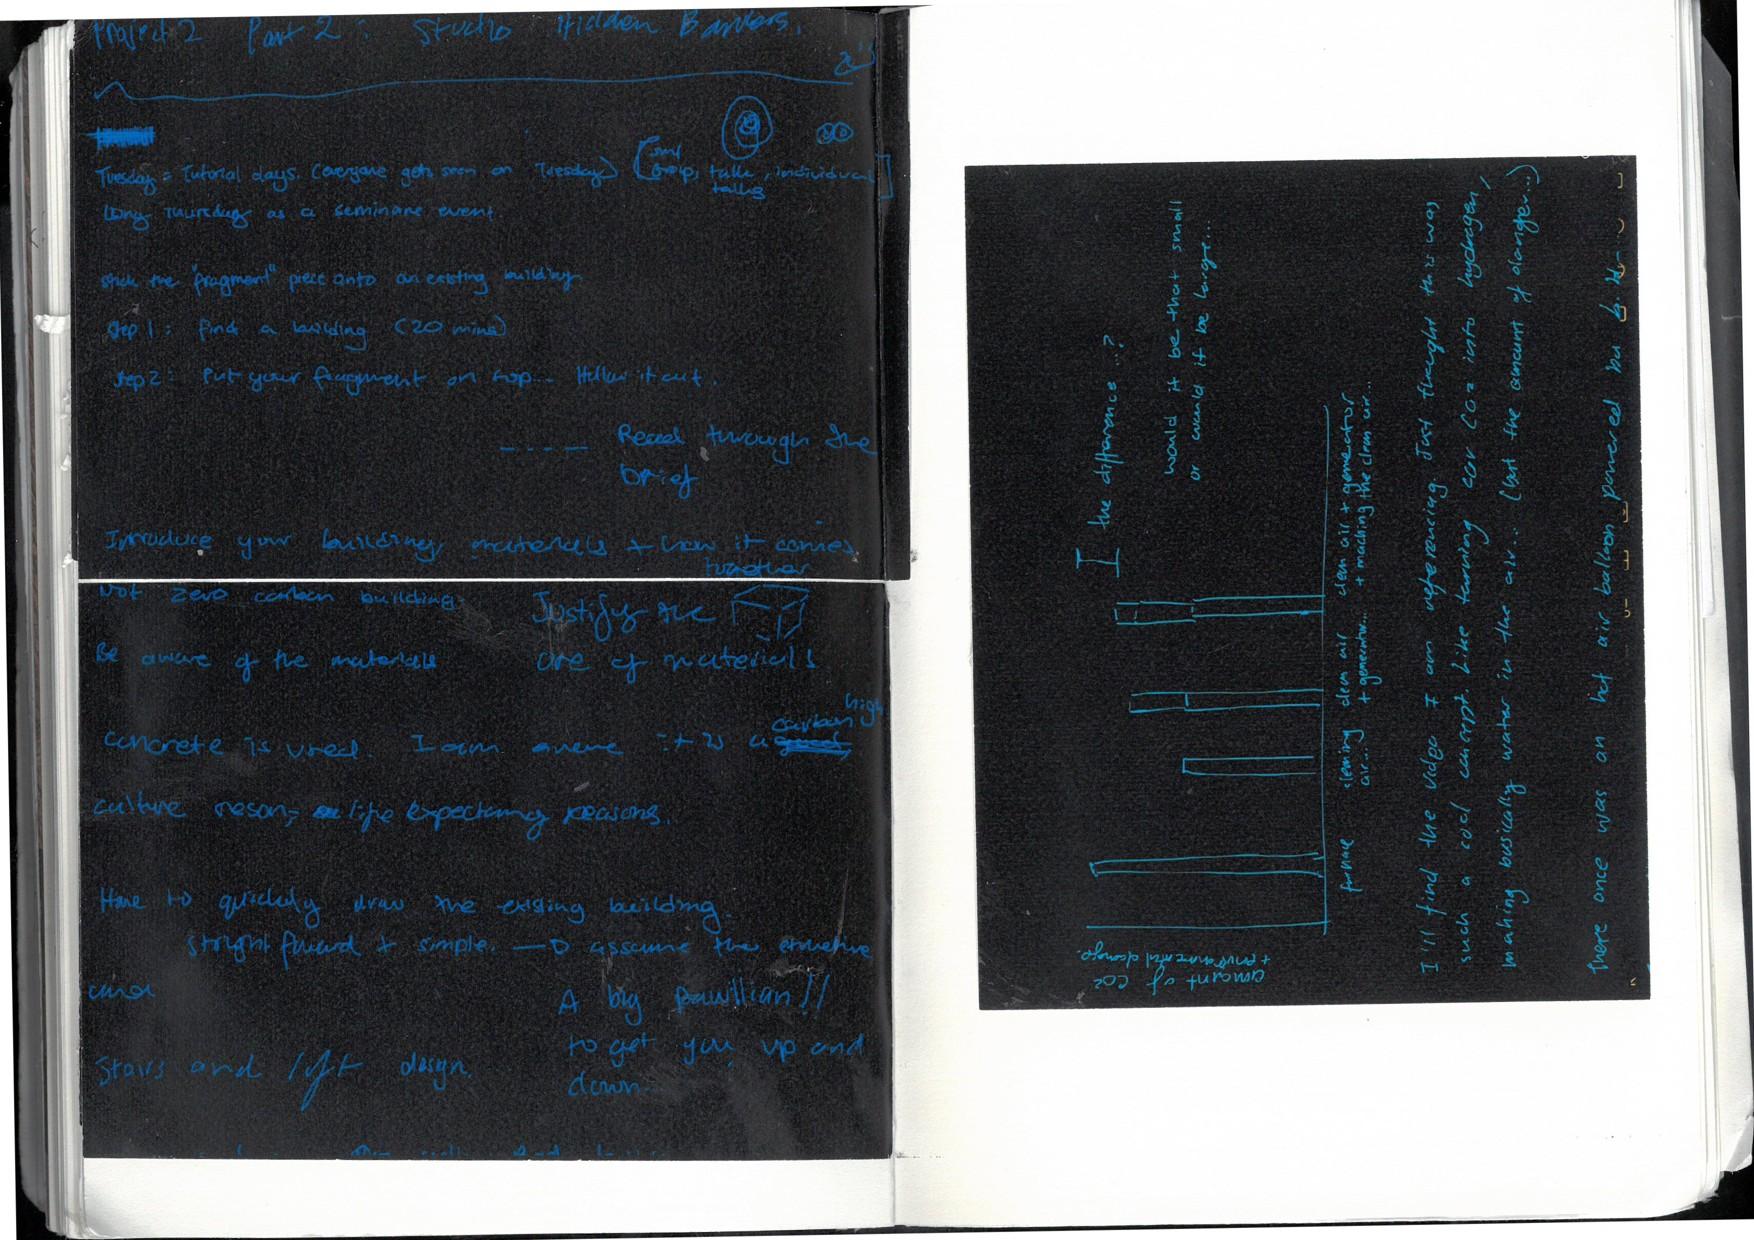 Project 2 Part 2: Studio Hidden
Tuesday = Tutorial days. (everyone gets seen on Tuesday) [small group, talk, individual talks]
Long Thursday as a seminare event
stick the "fragment" piece onto an existing building
step 1: find a building (20 mins)
step 2: Put your fragment on top... Hollow it out.
---- Read through the
brief
Introduce your building, materials + how it comes
together
Not zero carbon building. Justify the
Be aware of the materials use of materials
concrete is used. I am aware it is a high carbon
culture reson, life expectancy reasons.
Have to quickly draw the existing building.
stright forward + simple. —D assume the structure
and
A big pavillian!!
to get you up and
down...
Stairs and lift design.
amount of CO2
+ environmental damage.
furnace
air...
clean air
+ generator...
clean air + generator
+ machine, the clean air...
the difference...?
would it be that small
or would it be large...
I'll find the vidge I am refrencing. Just thought this was
such a cool concept. Like turning our CO2 into hydrogen,
making basically water in the air... (but the amount of danger...)
There once was an hot air baloon powered